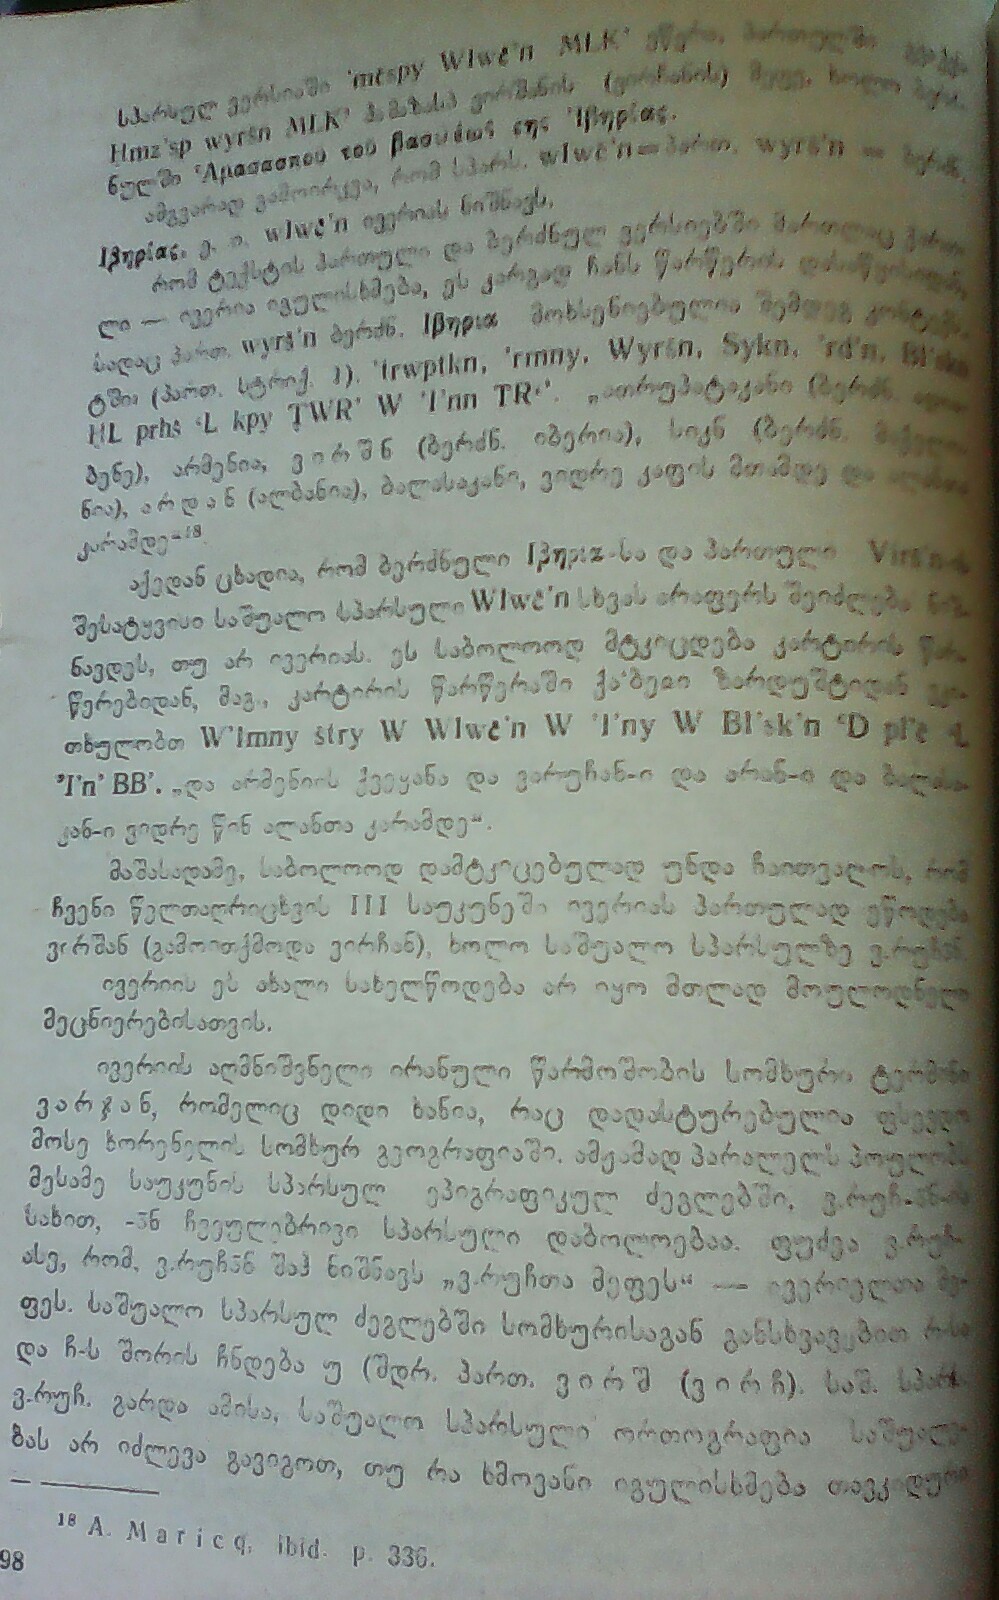 სპარსულ ვერსიაში 'mčspy Wlwč'n MLK' უწერია, პართულში
Hmz'sp wyršn MLK' ჰამაზასპ ვირშანის (ვირჩანის) მეფე, ხოლო ბერძ-
ნულში ‘Αμασασπου του βασιλέως της 'Ιβηρίας.
ამგვარად გამოირკვა, რომ სპარს. wlwč'n = პართ. wyrš'n = ბერძნ.
Ιβηρίας, ე. ი. wlwč'n ივერიას ნიშნავს.
რომ ტექსტის პართული და ბერძნულ ვერსიებში მართლაც
ლი — ივერია იგულისხმება, ეს კარგად ჩანს წარწერის
სადაც პართ. wyrš'n ბერძნ. Ιβηρια მოხსენიებულია შემდეგ კონტექს-
ტში: (პართ. სტრიქ. 1). 'trwptkn, 'rmny, Wyršn, Sykn, 'rd'n, Bl'skn
HL prhš ‘L kpy ṬWR' W 'l'nn TR‘'. „ათრუპატაკანი (ბერძნ.
ბენე), არმენია, ვირშნ (ბერძნ. იბერია), სიკნ (ბერძნ. მაქელო-
ნია), არდან (ალბანია), ბალასაკანი, ვიდრე კაფის მთამდე და ალანთა
კარამდე“¹⁸.
აქედან ცხადია, რომ ბერძნული Ιβηρια-სა და პართული Virš'n-ის
შესატყვისი საშუალო სპარსული Wlwč'n სხვას არაფერს შეიძლება ნიშ-
ნავდეს, თუ არ ივერიას. ეს საბოლოოდ მტკიცდება კარტირის წარ-
წერებიდან, მაგ., კარტირის წარწერაში ქა'ბეჲი ზარდუშტიდან ვკი-
თხულობთ W'lmny štry W Wlwč'n W 'l'ny W Bl'sk'n ‘D pl'č ‘L
'l'n' BB'. „და არმენიის ქვეყანა და ვარუჩან-ი და არან-ი და ბალასა-
კან-ი ვიდრე წინ ალანთა კარამდე“.
მაშასადამე, საბოლოოდ დამტკიცებულად უნდა ჩაითვალოს, რომ
ჩვენი წელთაღრიცხვის III საუკუნეში ივერიას პართულად ეწოდება
ვირშან (გამოითქმოდა ვირჩან), ხოლო საშუალო სპარსულზე ვ.რუჩან.
ივერიის ეს ახალი სახელწოდება არ იყო მთლად მოულოდნელი
მეცნიერებისათვის.
ივერიის აღმნიშვნელი ირანული წარმოშობის სომხური ტერმინი
ვარჯან, რომელიც დიდი ხანია, რაც დადასტურებულია ფსევდო
მოსე ხორენელის სომხურ გეოგრაფიაში. ამჟამად პარალელს პოულობს
მესამე საუკუნის სპარსულ ეპიგრაფიკულ ძეგლებში, ვ.რუჩ-ან-ის
სახით, -ან ჩვეულებრივი სპარსული დაბოლოებაა. ფუძეა ვ.რუჩ-
ასე, რომ, ვ.რუჩან შაჰ ნიშნავს „ვ.რუჩთა მეფეს“ — ივერიელთა მე-
ფეს. საშუალო სპარსულ ძეგლებში სომხურისაგან განსხვავებით რ-სა
და ჩ-ს შორის ჩნდება უ (შდრ. პართ. ვირშ (ვირჩ). საშ. სპარს.
ვ.რუჩ. გარდა ამისა, საშუალო სპარსული ორთოგრაფია საშუალე-
ბას არ იძლევა გავიგოთ, თუ რა ხმოვანი იგულისხმება თავკიდური
¹⁸ A. Maricq, ibid. p. 336.
98